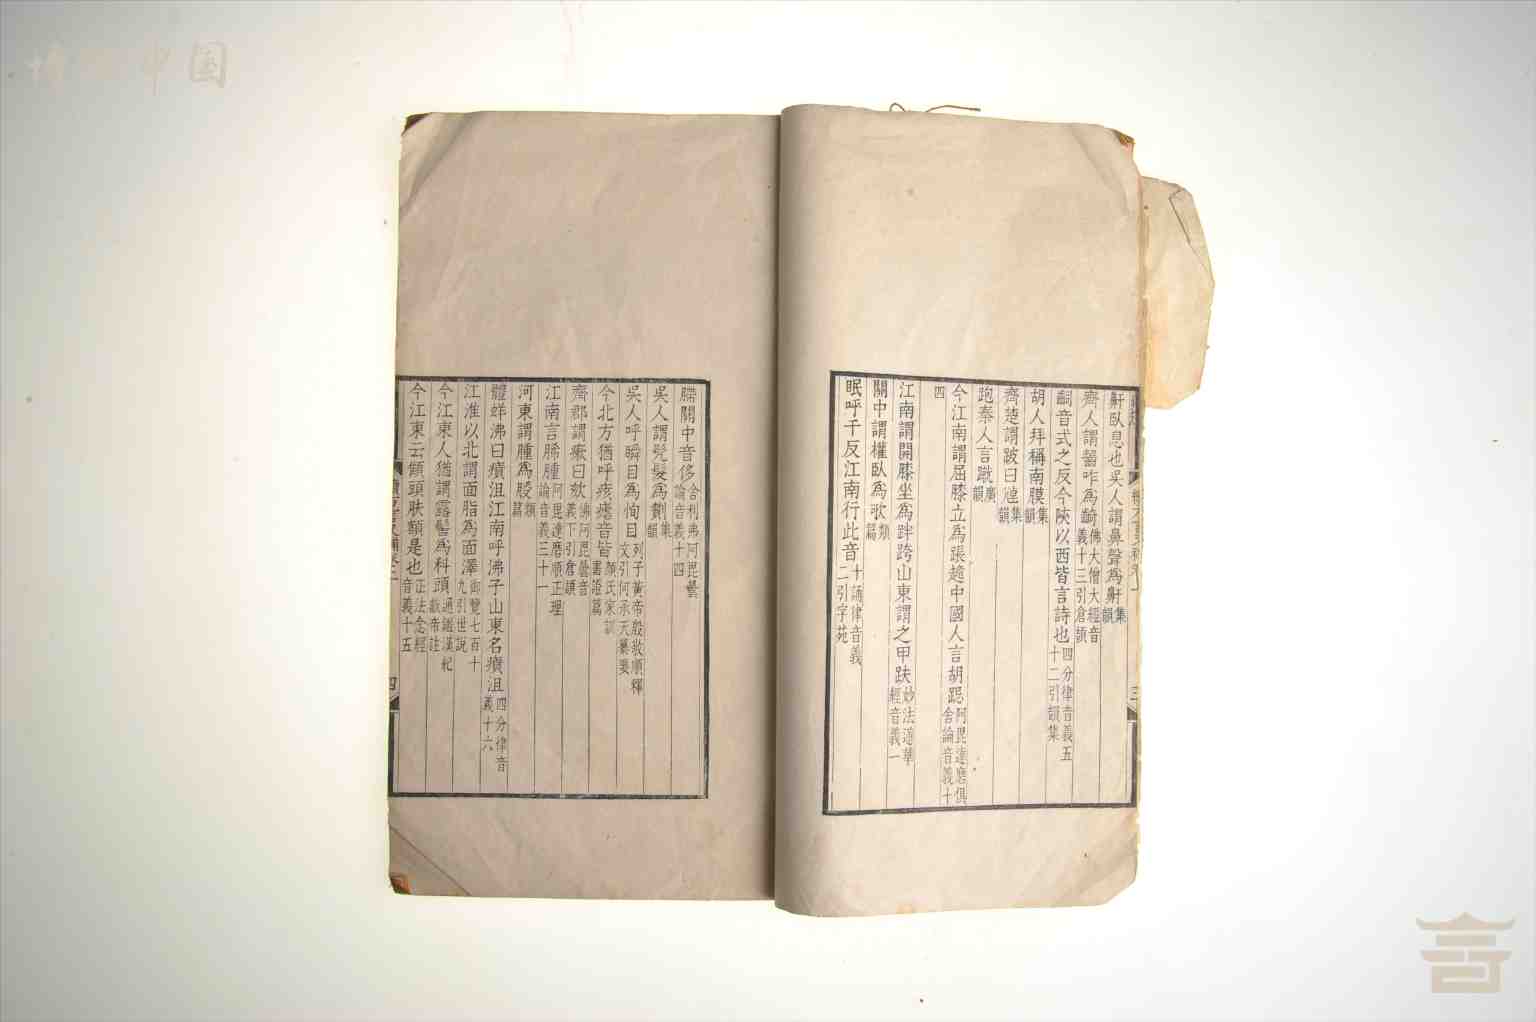 鼾臥息也吳人謂鼻聲爲鼾集韻
齊人謂齧咋爲齮佛大僧大經音義十三引倉頡
詞音式之反今陝以西皆言詩也四分律音義五十二引韻集
胡人拜稱南膜集韻
齊楚謂跛曰𨇤集韻
跑秦人言蹴廣韻
今江南謂屈膝立爲䠆跽中國人言胡跽阿毘達磨俱舍論音義十四
江南謂開膝坐爲跘跨山東謂之甲趺妙法蓮華經音義一
關中謂權臥爲㰤類篇
眠呼千反江南行此音十誦律音義二引字苑
䐑關中音侈舍利弗阿毘曇論音義十四
吳人謂髡髮爲㔍集韻
吳人呼瞬目爲恂目列子黃帝殷敬順釋文引何承天纂要
今北方猶呼痎瘧音皆顏氏家訓書證篇
齊郡謂瘷曰欬佛阿毘曇音義下引倉頡
江南言腨腫阿毘達磨順正理論音義三十一
河東謂腫爲㱊類篇
癰蛘沸曰癀沮江南呼沸子山東名癀沮四分律音義十六
江淮以北謂面脂爲面澤御覽七百十九引世說
今江東人猶謂露髻爲科頭通鑑漢紀獻帝註
今江東云䪼頭肤額是也正法念經音義十五
四